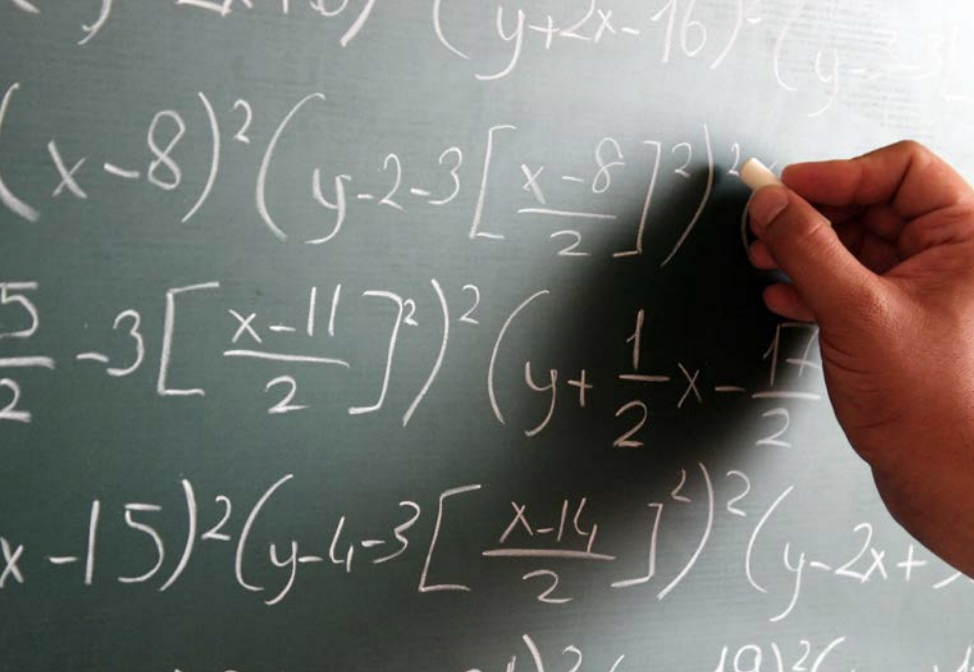 (y+2x-16)²
(x-8)²(y-2-3[(x-8)/2]²)²
5/2-3[(x-11)/2]²)²(y+1/2x-17/2
x-15)²(y-4-3[(x-14)/2]²)²(y-2x+